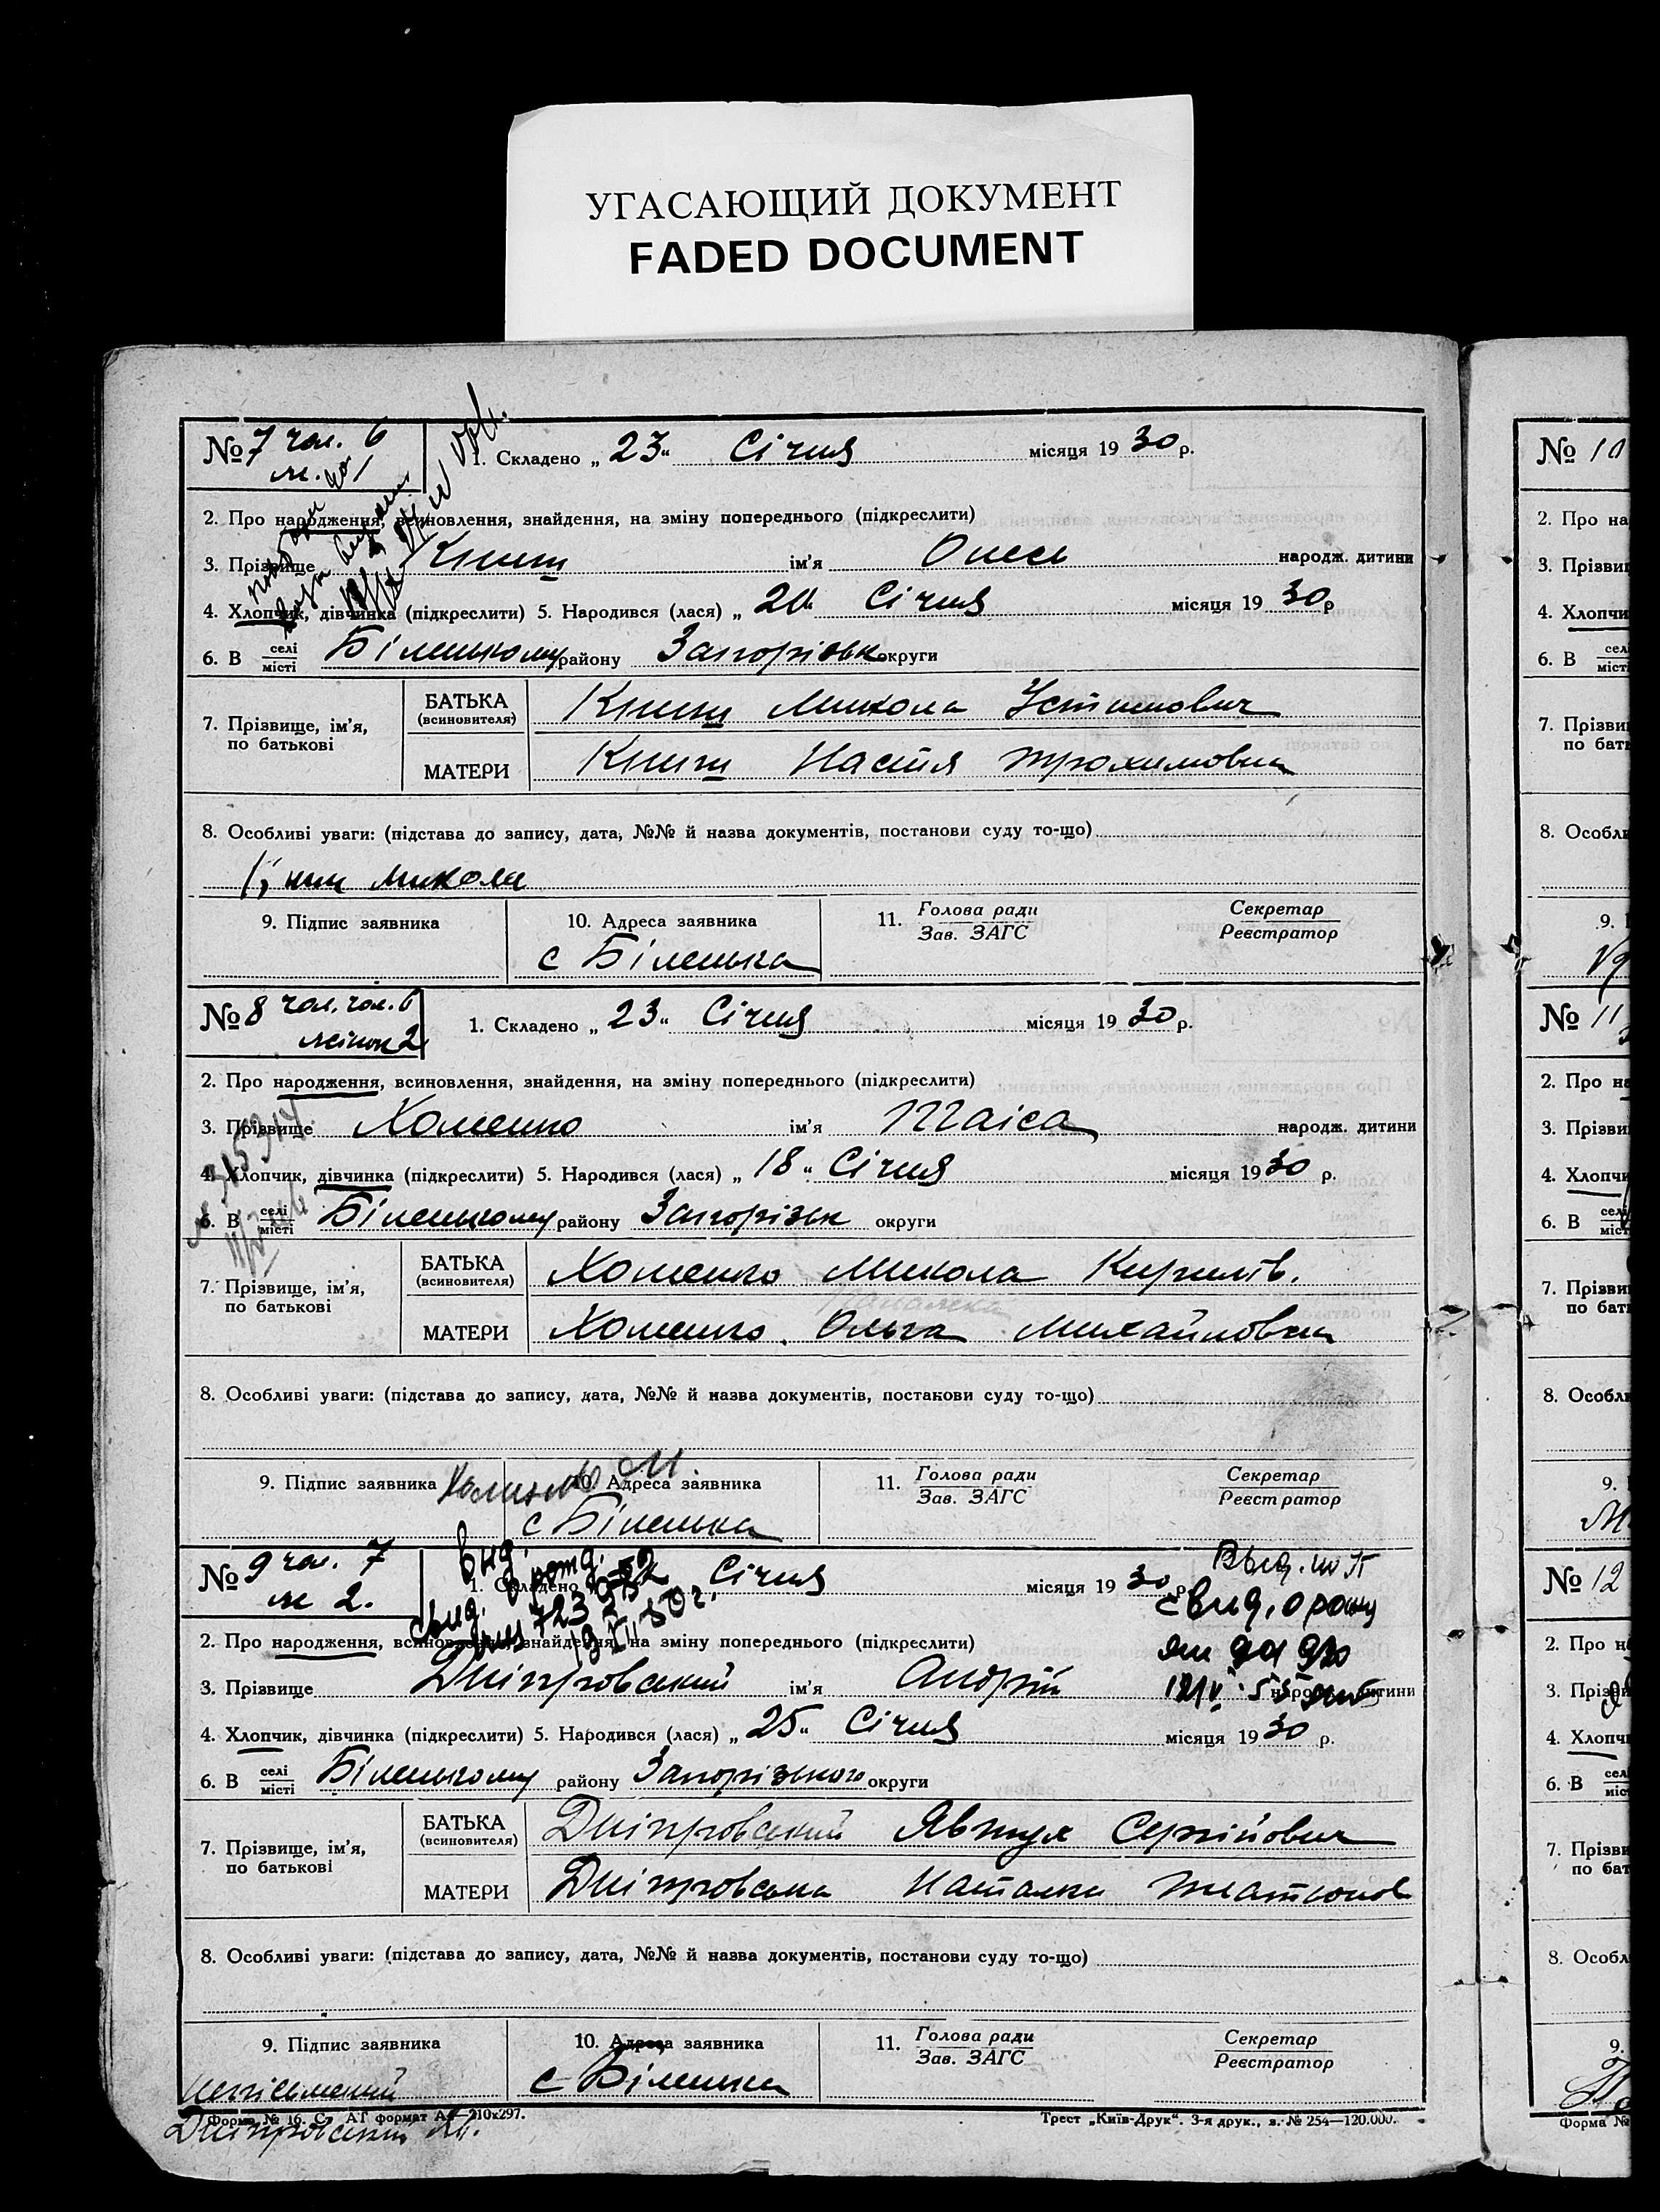 УГАСАЮЩИЙ ДОКУМЕНТ
FADED DOCUMENT
№ 7 чол. 6
1. Складено „ 23 “ Січня місяця 19 30 р.
2. Про народження, всиновлення, знайдення, на зміну попереднього (підкреслити)
3. Прізвище Книш ім'я Олесь народж. дитини
4. Хлопчик, дівчинка (підкреслити) 5. Народився (лася) „ Січня місяця 19 30 р
6. В селі місті Біленькому району Запорізьк округи
7. Прізвище, ім'я, по батькові
БАТЬКА (всиновителя) Книш Микола Устимович
МАТЕРИ Книш Настя Трохимовна
8. Особливі уваги: (підстава до запису, дата, №№ й назва документів, постанови суду то-що)
Микола
9. Підпис заявника
10. Адреса заявника
с Біленька
11. Голова ради Зав. ЗАГС
Секретар Реєстратор
№ 8 чол. чол. 6
жінок 2
1. Складено „ 23 “ Січня місяця 19 30 р.
2. Про народження, всиновлення, знайдення, на зміну попереднього (підкреслити)
3. Прізвище Хоменко ім'я Таіса народж. дитини
4. Хлопчик, дівчинка (підкреслити) 5. Народився (лася) „ 18 “ Січня місяця 19 30 р.
6. В селі місті Біленькому району Запорізьк округи
7. Прізвище, ім'я, по батькові
БАТЬКА (всиновителя) Хоменко Микола Кирилів.
МАТЕРИ Хоменко Ольга Михайловна
8. Особливі уваги: (підстава до запису, дата, №№ й назва документів, постанови суду то-що)
9. Підпис заявника Хоменко М
10. Адреса заявника
с Біленька
11. Голова ради Зав. ЗАГС
Секретар Реєстратор
№ 9 чол. 7
ж 2.
1. Складено Січня місяця 19 30 р.
2. Про народження, всиновлення, знайдення, на зміну попереднього (підкреслити)
3. Прізвище Дніпровський ім'я Андрій народж. дитини
4. Хлопчик, дівчинка (підкреслити) 5. Народився (лася) „ 25 “ Січня місяця 19 30 р.
6. В селі місті Біленькому району Запорізького округи
7. Прізвище, ім'я, по батькові
БАТЬКА (всиновителя) Дніпровський Явтух Сергійович
МАТЕРИ Дніпровська Наталка Платонов
8. Особливі уваги: (підстава до запису, дата, №№ й назва документів, постанови суду то-що)
9. Підпис заявника
10. Адреса заявника
с Біленька
11. Голова ради Зав. ЗАГС
Секретар Реєстратор
неписьменний
Дніпровський
Форма № 16. С. АГ формат А4—210х297.
Трест „Київ-Друк“. 3-я друк., з. № 254—120.000.
№ 10
2. Про на
3. Прізви
4. Хлопчи
6. В
7. Прізви
по бать
8. Особли
9.
№ 11
2. Про на
3. Прізви
4. Хлопчи
6. В
7. Прізви
по бат
8. Особли
9.
№ 12
2. Про н
3. Прізви
4. Хлопч
6. В
7. Прізви
по бат
8. Особл
9.
Форма №